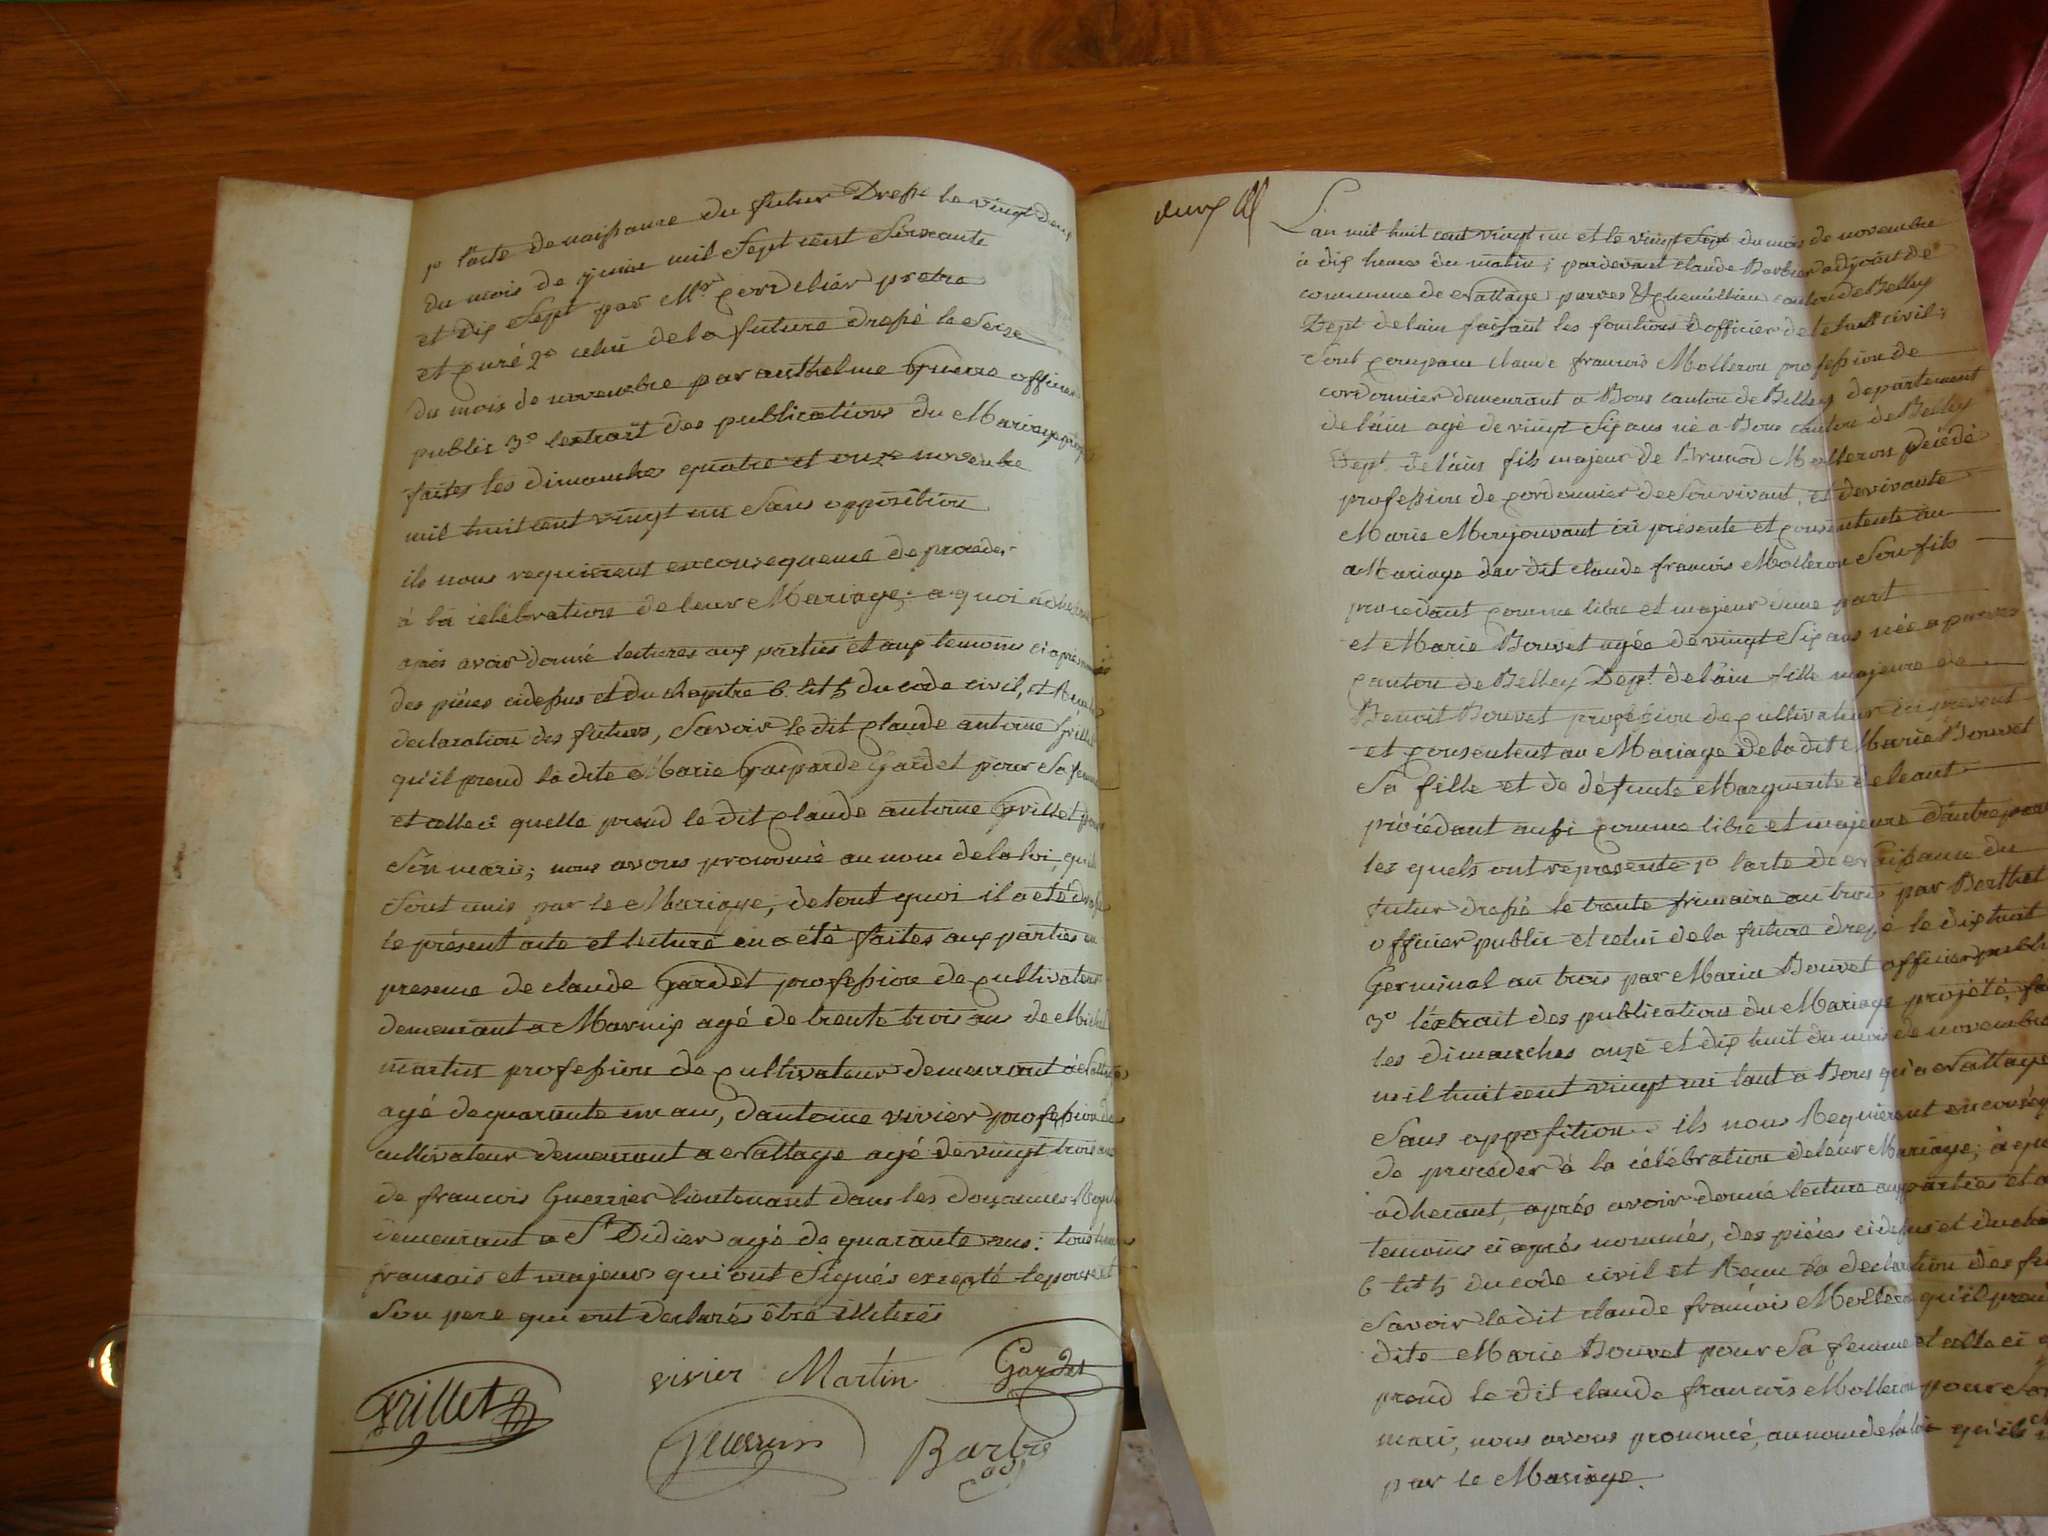 1º lacte de naissance du futur Dressé le vingt deux
du mois de juin mil sept cent soixante
et dix sept par Mr cordelier pretre
et curé 2º celui de la future dressé le seize
du mois de novembre par anthelme Guerre officier
public 3º lextrait des publications du Mariage
faites les dimanches quatre et onze novembre
mil huit cent vingt un sans opposition
ils nous requierent en consequence de proceder
à la célébration de leur Mariage; a quoi adherant
après avoir donné lectures aux parties et aux temoins ci après
des pièces cidessus et du chapitre 6. tit 5 du code civil, et
declaration des futurs, savoir le dit claude antoine Grillet
qu'il prend la dite Marie Gasparde Gardet pour sa femme
et celle ci quelle prend le dit claude antoine Grillet pour
son mari; nous avons prononcé au nom de la loi, quils
sont unis par le Mariage, de tout quoi il a été dressé
le présent acte et lecture en a été faites aux parties en
presence de claude Gardet profession de cultivateur
demeurant a Marnix agé de trente trois ans de Michel
martin profession de cultivateur demeurant à
agé de quarante un ans, dantoine vivier profession de
cultivateur demeurant a Nattage agé de vingt trois ans
de francois Guerrier lieutenant dans les douannes
demeurant a St Didier agé de quarante ans: tous
francais et majeurs qui ont signés excepté lepouse et
son pere qui ont declarés être illiterés
Grillet vivier Martin Gardet
Barbier
L'an mil huit cent vingt un et le vingt sept du mois de novembre
à dix heures du matin; pardevant claude Barbier adjoint de
commune de Nattage parves & chemillieu canton de Belley
Dept de lain faisant les fonctions d officier de letat civil;
sont comparu claude francois Molleron profession de
cordonnier demeurant a Bons canton de Belley departement
de lain agé de vingt six ans né a Bons canton de Belley
Dept. de lain fils majeur de Brunod Molleron décédé
profession de cordonnier de son vivant, et de vivante
Marie Monjouvant ici présente et consentente au
Mariage du dit claude francois Molleron son fils
procedant comme libre et majeur dune part
et Marie Bouvet agée de vingt six ans née a parves
canton de Belley Dept. de lain fille majeure de
Benoit Bouvet profession de cultivateur ici present
et consentent au Mariage de la dit Marie Bouvet
sa fille et de défunte Marguerite
procédant aussi comme libre et majeure d'autre part
les quels ont representé 1º lacte de naissance du
futur dressé le trente frimaire an trois par Berthet
officier public et celui de la future dressé le dix huit
Germinal an trois par Marin Bouvet officier public
3º léxtrait des publications du Mariage projeté, fa
les dimanches onze et dix huit du mois de novembre
mil huit cent vingt un tant a Bons qu'a Nattage
sans opposition. ils nous requierent en conseq
de procéder à la célébration de leur Mariage; à qu
adherant, après avoir donné lecture aux parties et a
temoins ci après nommés, des pièces ci dessus et du cha
6 tit 5 du code civil et la declaration des fu
savoir le dit claude francois Molleron qu'il prend
dite Marie Bouvet pour sa femme et celle ci
prend le dit claude francois Molleron pour son
mari, nous avons prononcé, au nom de la loi qu'ils
par le Mariage.